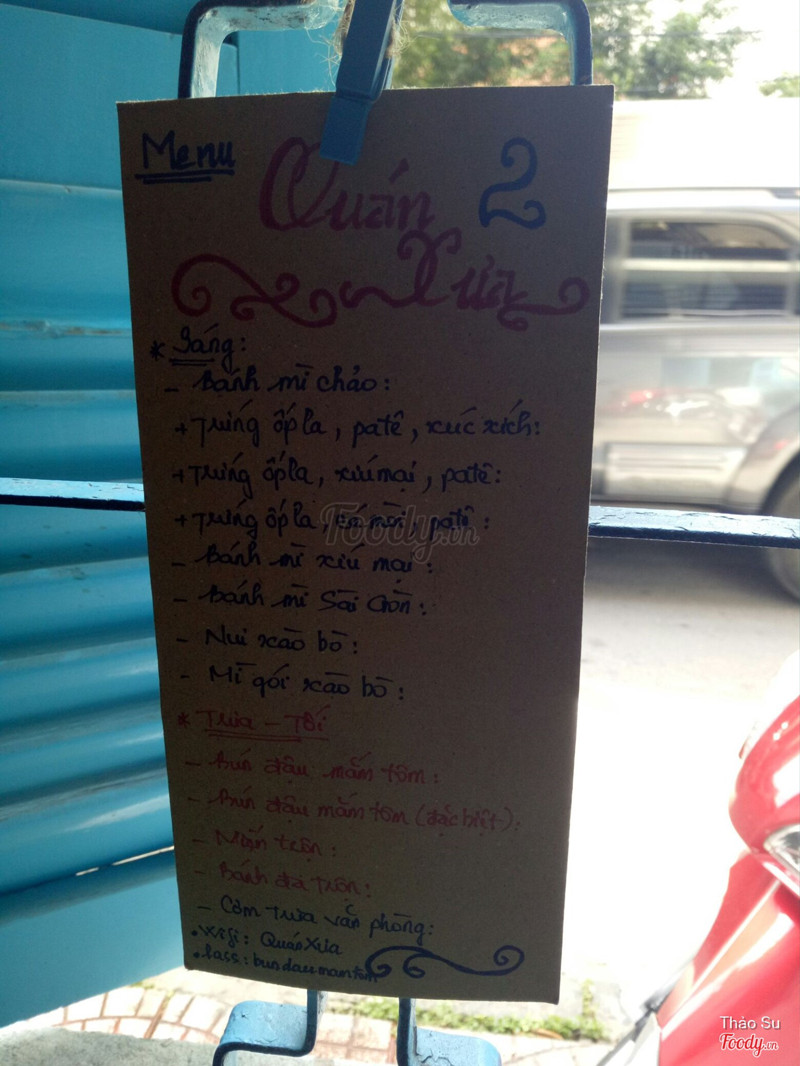 Menu
Quán 2
Xưa
* Sáng:
- Bánh mì chảo:
+ Trứng ốpla, patê, xúc xích:
+ Trứng ốpla, xíu mại, patê:
+ Trứng ốpla, cá mòi, patê:
- Bánh mì xíu mại:
- Bánh mì Sài Gòn:
- Nui xào bò:
- Mì gói xào bò:
* Trưa - Tối
- Bún đậu mắm tôm:
- Bún đậu mắm tôm (đặc biệt):
- trộn:
- Bánh đa trộn:
- Cơm trưa văn phòng:
• Wifi: Quán Xưa
• Pass: bundaumamtom
Foody.vn
Thảo Su
Foody.vn